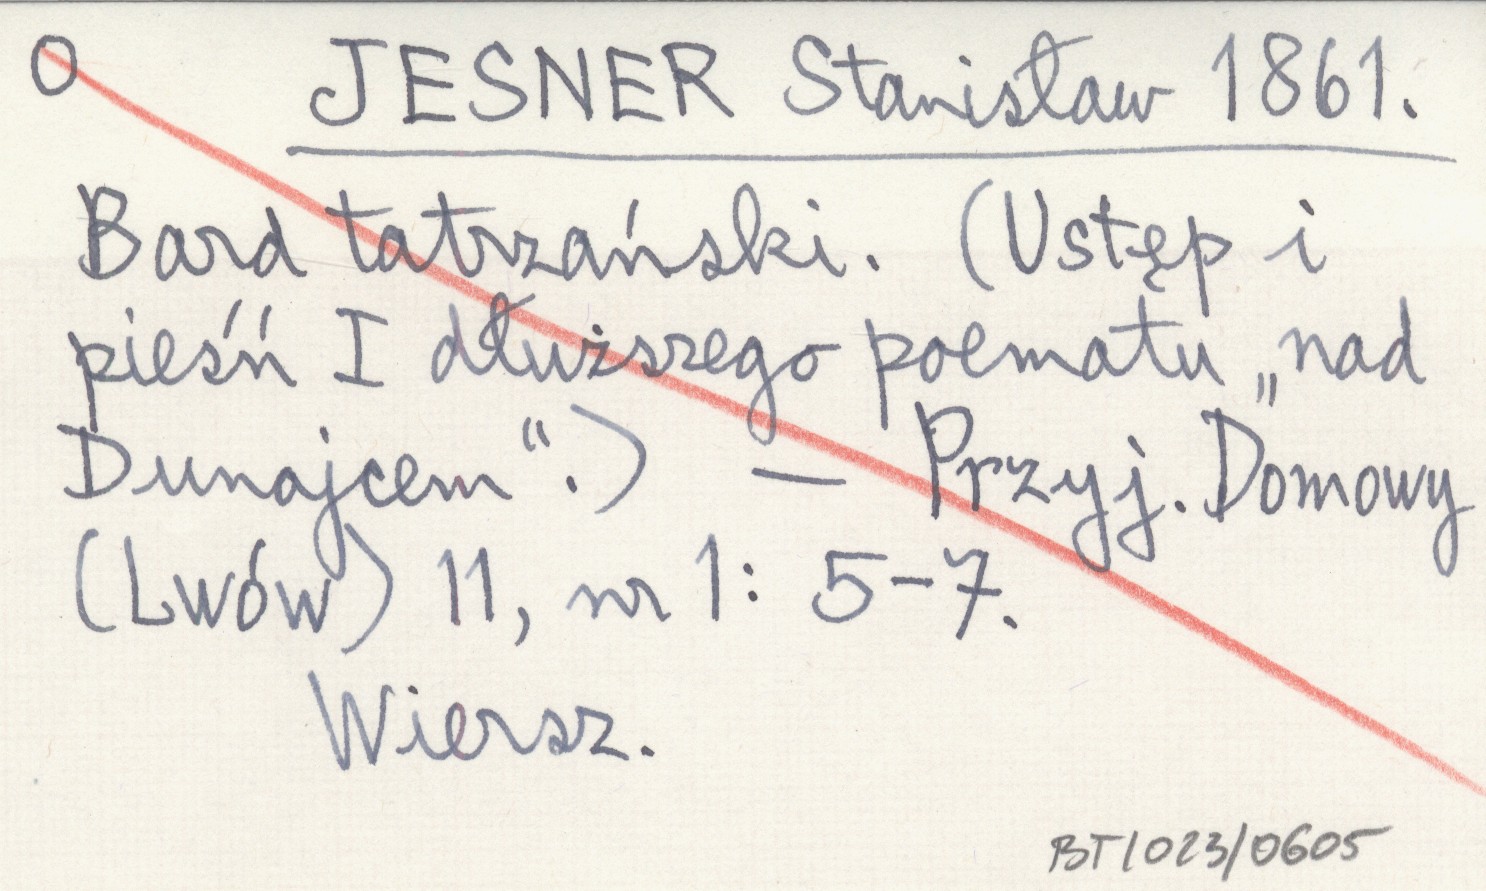 O JESNER Stanisław 1861.
Bard tatrzański. (Ustęp i
pieśń I dłuższego poematu „nad
Dunajcem“.) — Przyj. Domowy
(Lwów) 11, nr 1: 5-7.
Wiersz.
BT/023/0605